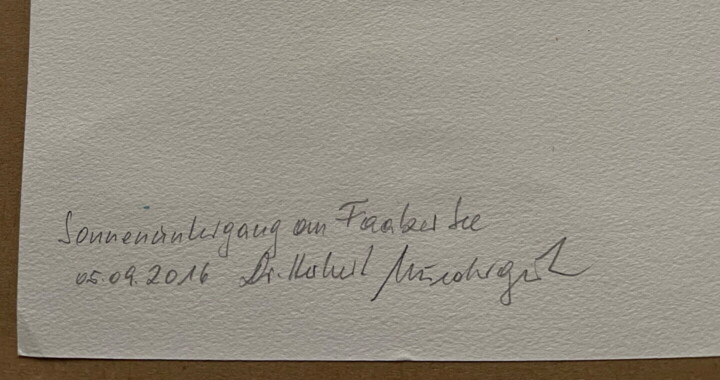 Sonnenuntergang am Faaker See
05.09.2016 Dr. Herbert